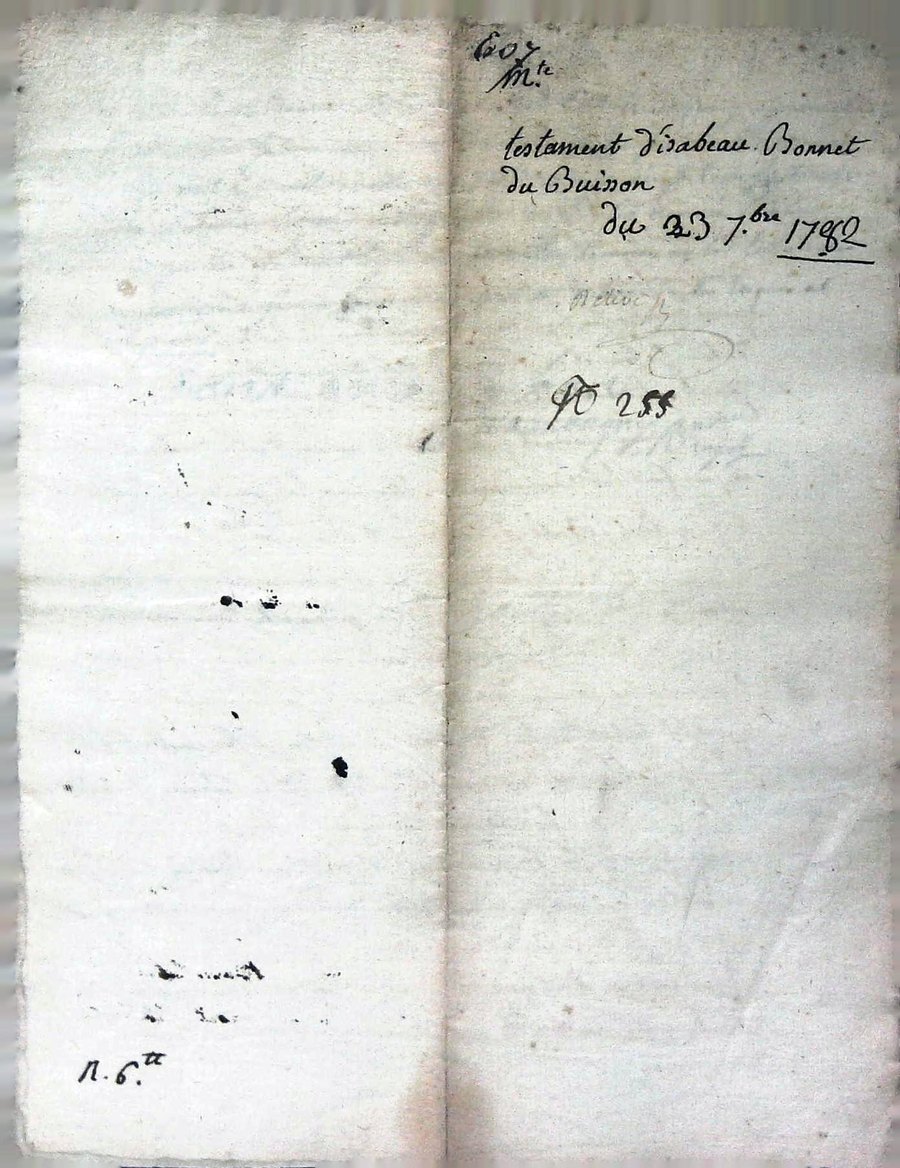 M.te
testament d'isabeau Bonnet
du Buisson
du 23 7.bre 1782
N 255
R. 6.tt